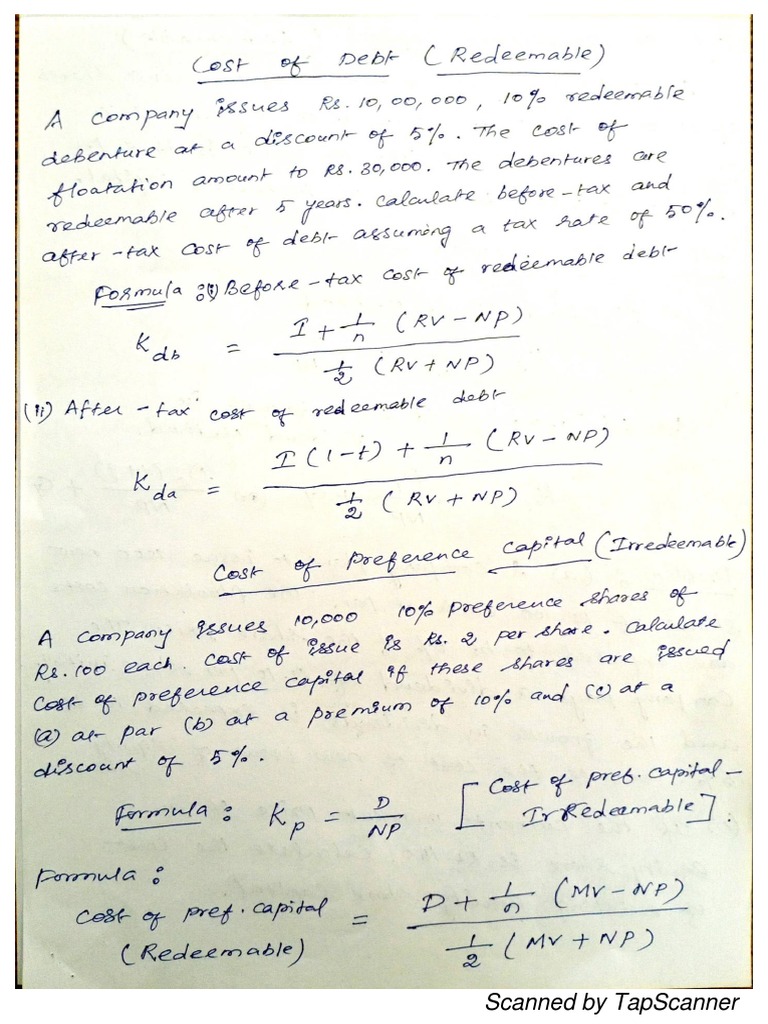 Cost of Debt (Redeemable)
A company issues Rs. 10,00,000, 10% redeemable
debenture at a discount of 5%. The cost of
floatation amount to Rs. 30,000. The debentures are
redeemable after 5 years. Calculate before-tax and
after-tax cost of debt assuming a tax rate of 50%.
Formula: (i) Before-tax cost of redeemable debt
K_db = (I + 1/n (RV - NP)) / (1/2 (RV + NP))
(ii) After-tax cost of redeemable debt
K_da = (I (1-t) + 1/n (RV - NP)) / (1/2 (RV + NP))
Cost of Preference Capital (Irredeemable)
A company issues 10,000 10% preference shares of
Rs. 100 each. Cost of issue is Rs. 2 per share. Calculate
cost of preference capital if these shares are issued
(a) at par (b) at a premium of 10% and (c) at a
discount of 5%.
Formula: K_p = D/NP [Cost of pref. capital -
Irredeemable].
Formula:
Cost of pref. capital
(Redeemable) = (D + 1/n (MV - NP)) / (1/2 (MV + NP))
Scanned by TapScanner